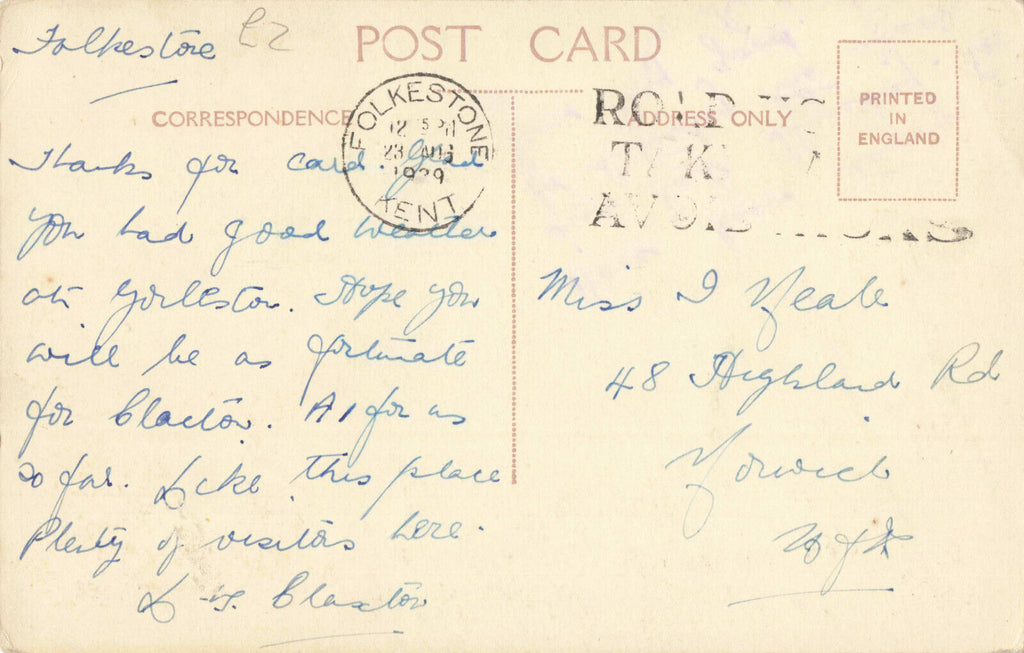 Folkestone £2
POST CARD
CORRESPONDENCE
ADDRESS ONLY
PRINTED
IN
ENGLAND
FOLKESTONE
12 15 PM
23 AUG
1939
KENT
ROAD
AVOID
Thanks for card. Glad
you had good weather
at Gorleston. Hope you
will be as fortunate
for Clacton. A1 for us
so far. Like this place
Plenty of visitors here.
Claxton
Miss I Neale
48 Highland Rd
Norwich
Nfk